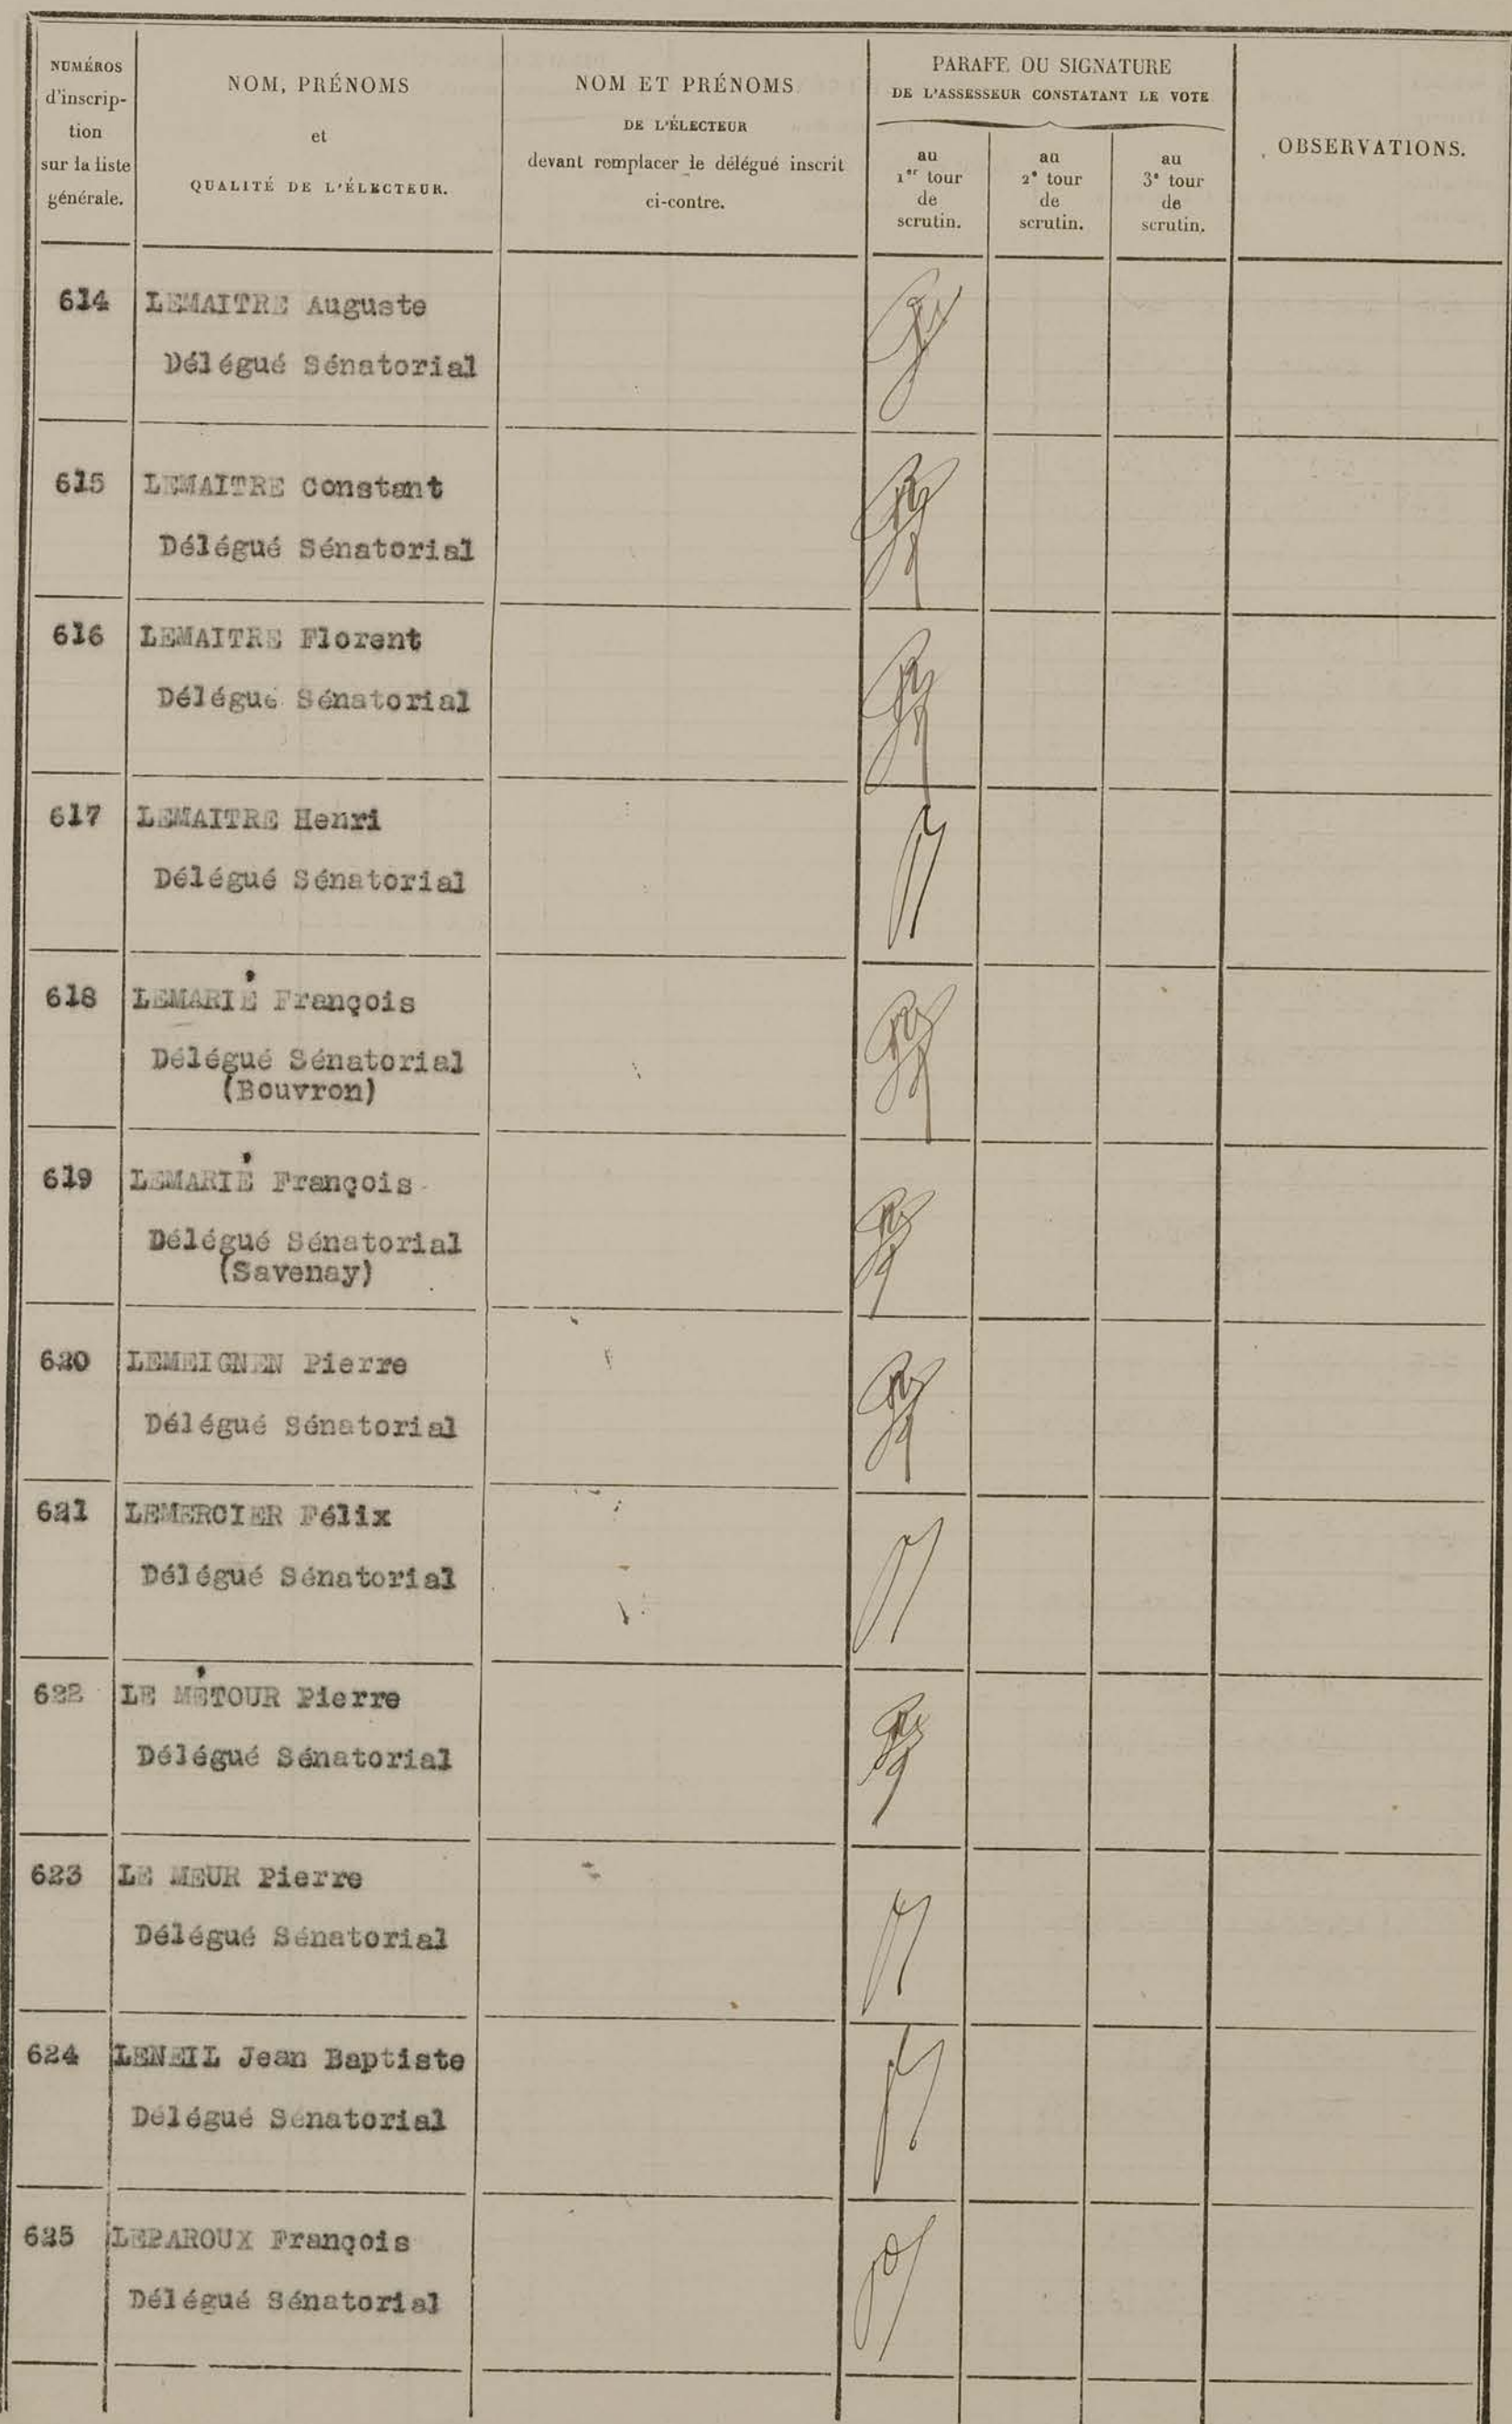 NUMÉROS
d'inscrip-
tion
sur la liste
générale.
NOM, PRÉNOMS
et
QUALITÉ DE L'ÉLECTEUR.
NOM ET PRÉNOMS
DE L'ÉLECTEUR
devant remplacer le délégué inscrit
ci-contre.
PARAFE OU SIGNATURE
DE L'ASSESSEUR CONSTATANT LE VOTE
au
1er tour
de
scrutin.
au
2e tour
de
scrutin.
au
3e tour
de
scrutin.
OBSERVATIONS.
614 LEMAITRE Auguste
Délégué Sénatorial
615 LEMAITRE Constant
Délégué Sénatorial
616 LEMAITRE Florent
Délégué Sénatorial
617 LEMAITRE Henri
Délégué Sénatorial
618 LEMARIÉ François
Délégué Sénatorial
(Bouvron)
619 LEMARIÉ François
Délégué Sénatorial
(Savenay)
620 LEMEIGNEN Pierre
Délégué Sénatorial
621 LEMERCIER Félix
Délégué Sénatorial
622 LE MÉTOUR Pierre
Délégué Sénatorial
623 LE MEUR Pierre
Délégué Sénatorial
624 LENEIL Jean Baptiste
Délégué Sénatorial
625 LEPAROUX François
Délégué Sénatorial